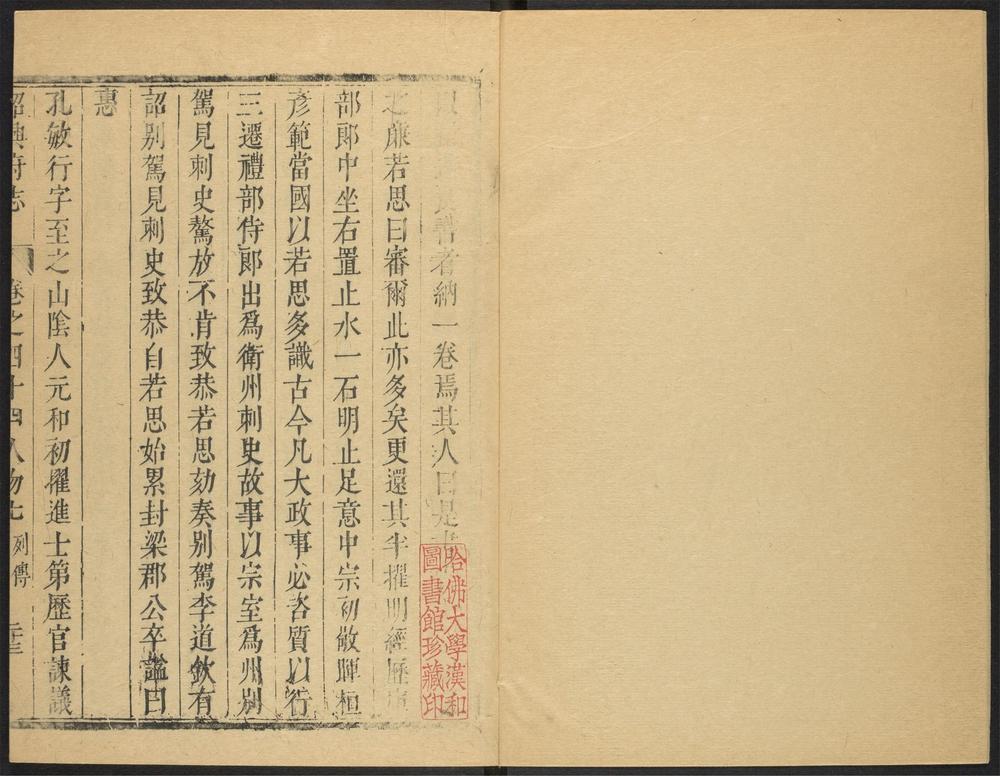 者納一卷焉其人曰是
之廉若思曰審爾此亦多矣更還其半擢明經歷庫
部郎中坐右置止水一石明止足意中宗初敬暉桓
彥範當國以若思多識古今凡大政事必咨質以行
三遷禮部侍郎出爲衛州刺史故事以宗室爲州别
駕見刺史驁放不肯致恭若思劾奏别駕李道欽有
詔别駕見刺史致恭自若思始累封梁郡公卒謚曰
惠
孔敏行字至之山陰人元和初擢進士第歷官諫議
紹興府志 卷之四十四人物七 列傳 二十三
哈佛大學漢和
圖書館珍藏印